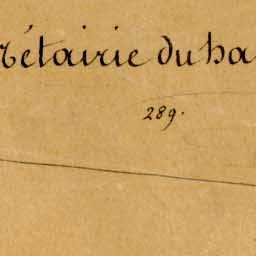 Métairie du ha
289.